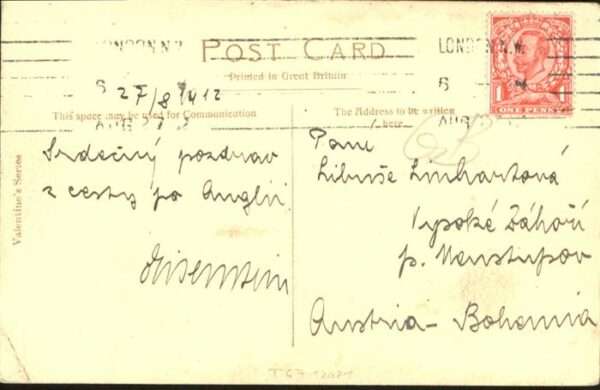 POST CARD
Printed in Great Britain
LONDON N.W.
ONE PENNY
1 1
27/8 1912
This space may be used for Communication
The Address to be written
here
Valentine's Series
Srdečný pozdrav
z cesty po Anglii
Paní
Libuše Linhartová
Vysoké Záhoří
p. Neustupov
Austria - Bohemia